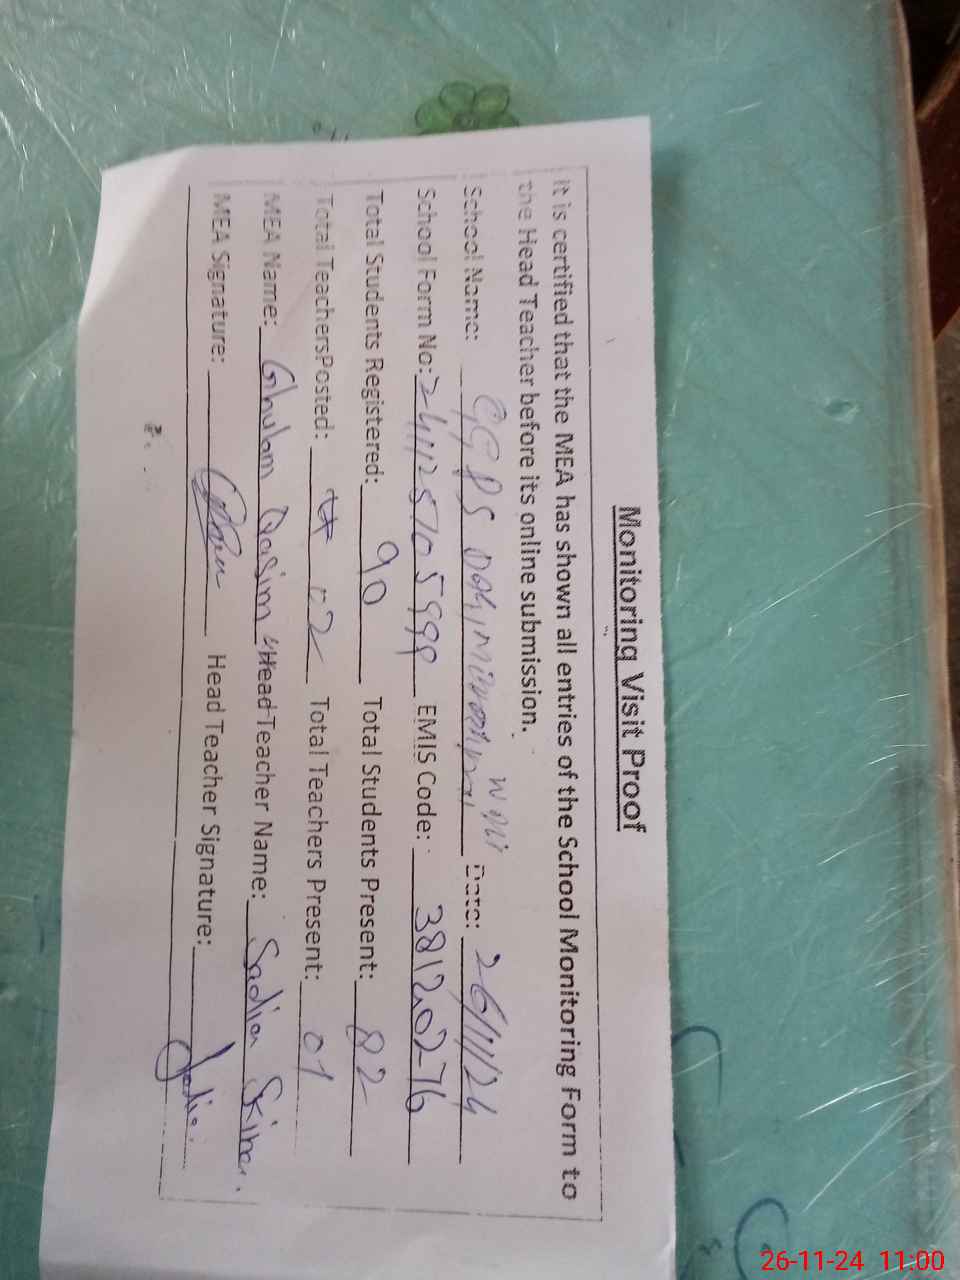 Monitoring Visit Proof
It is certified that the MEA has shown all entries of the School Monitoring Form to
the Head Teacher before its online submission.
School Name: GGPS Date: 26/11/24
School Form No: 241125705999 EMIS Code: 38120276
Total Students Registered: 90 Total Students Present: 82
Total TeachersPosted: 02 Total Teachers Present: 01
MEA Name: Ghulam Qasim Head Teacher Name: Sadia
MEA Signature: Head Teacher Signature: Sadia
26-11-24 11:00